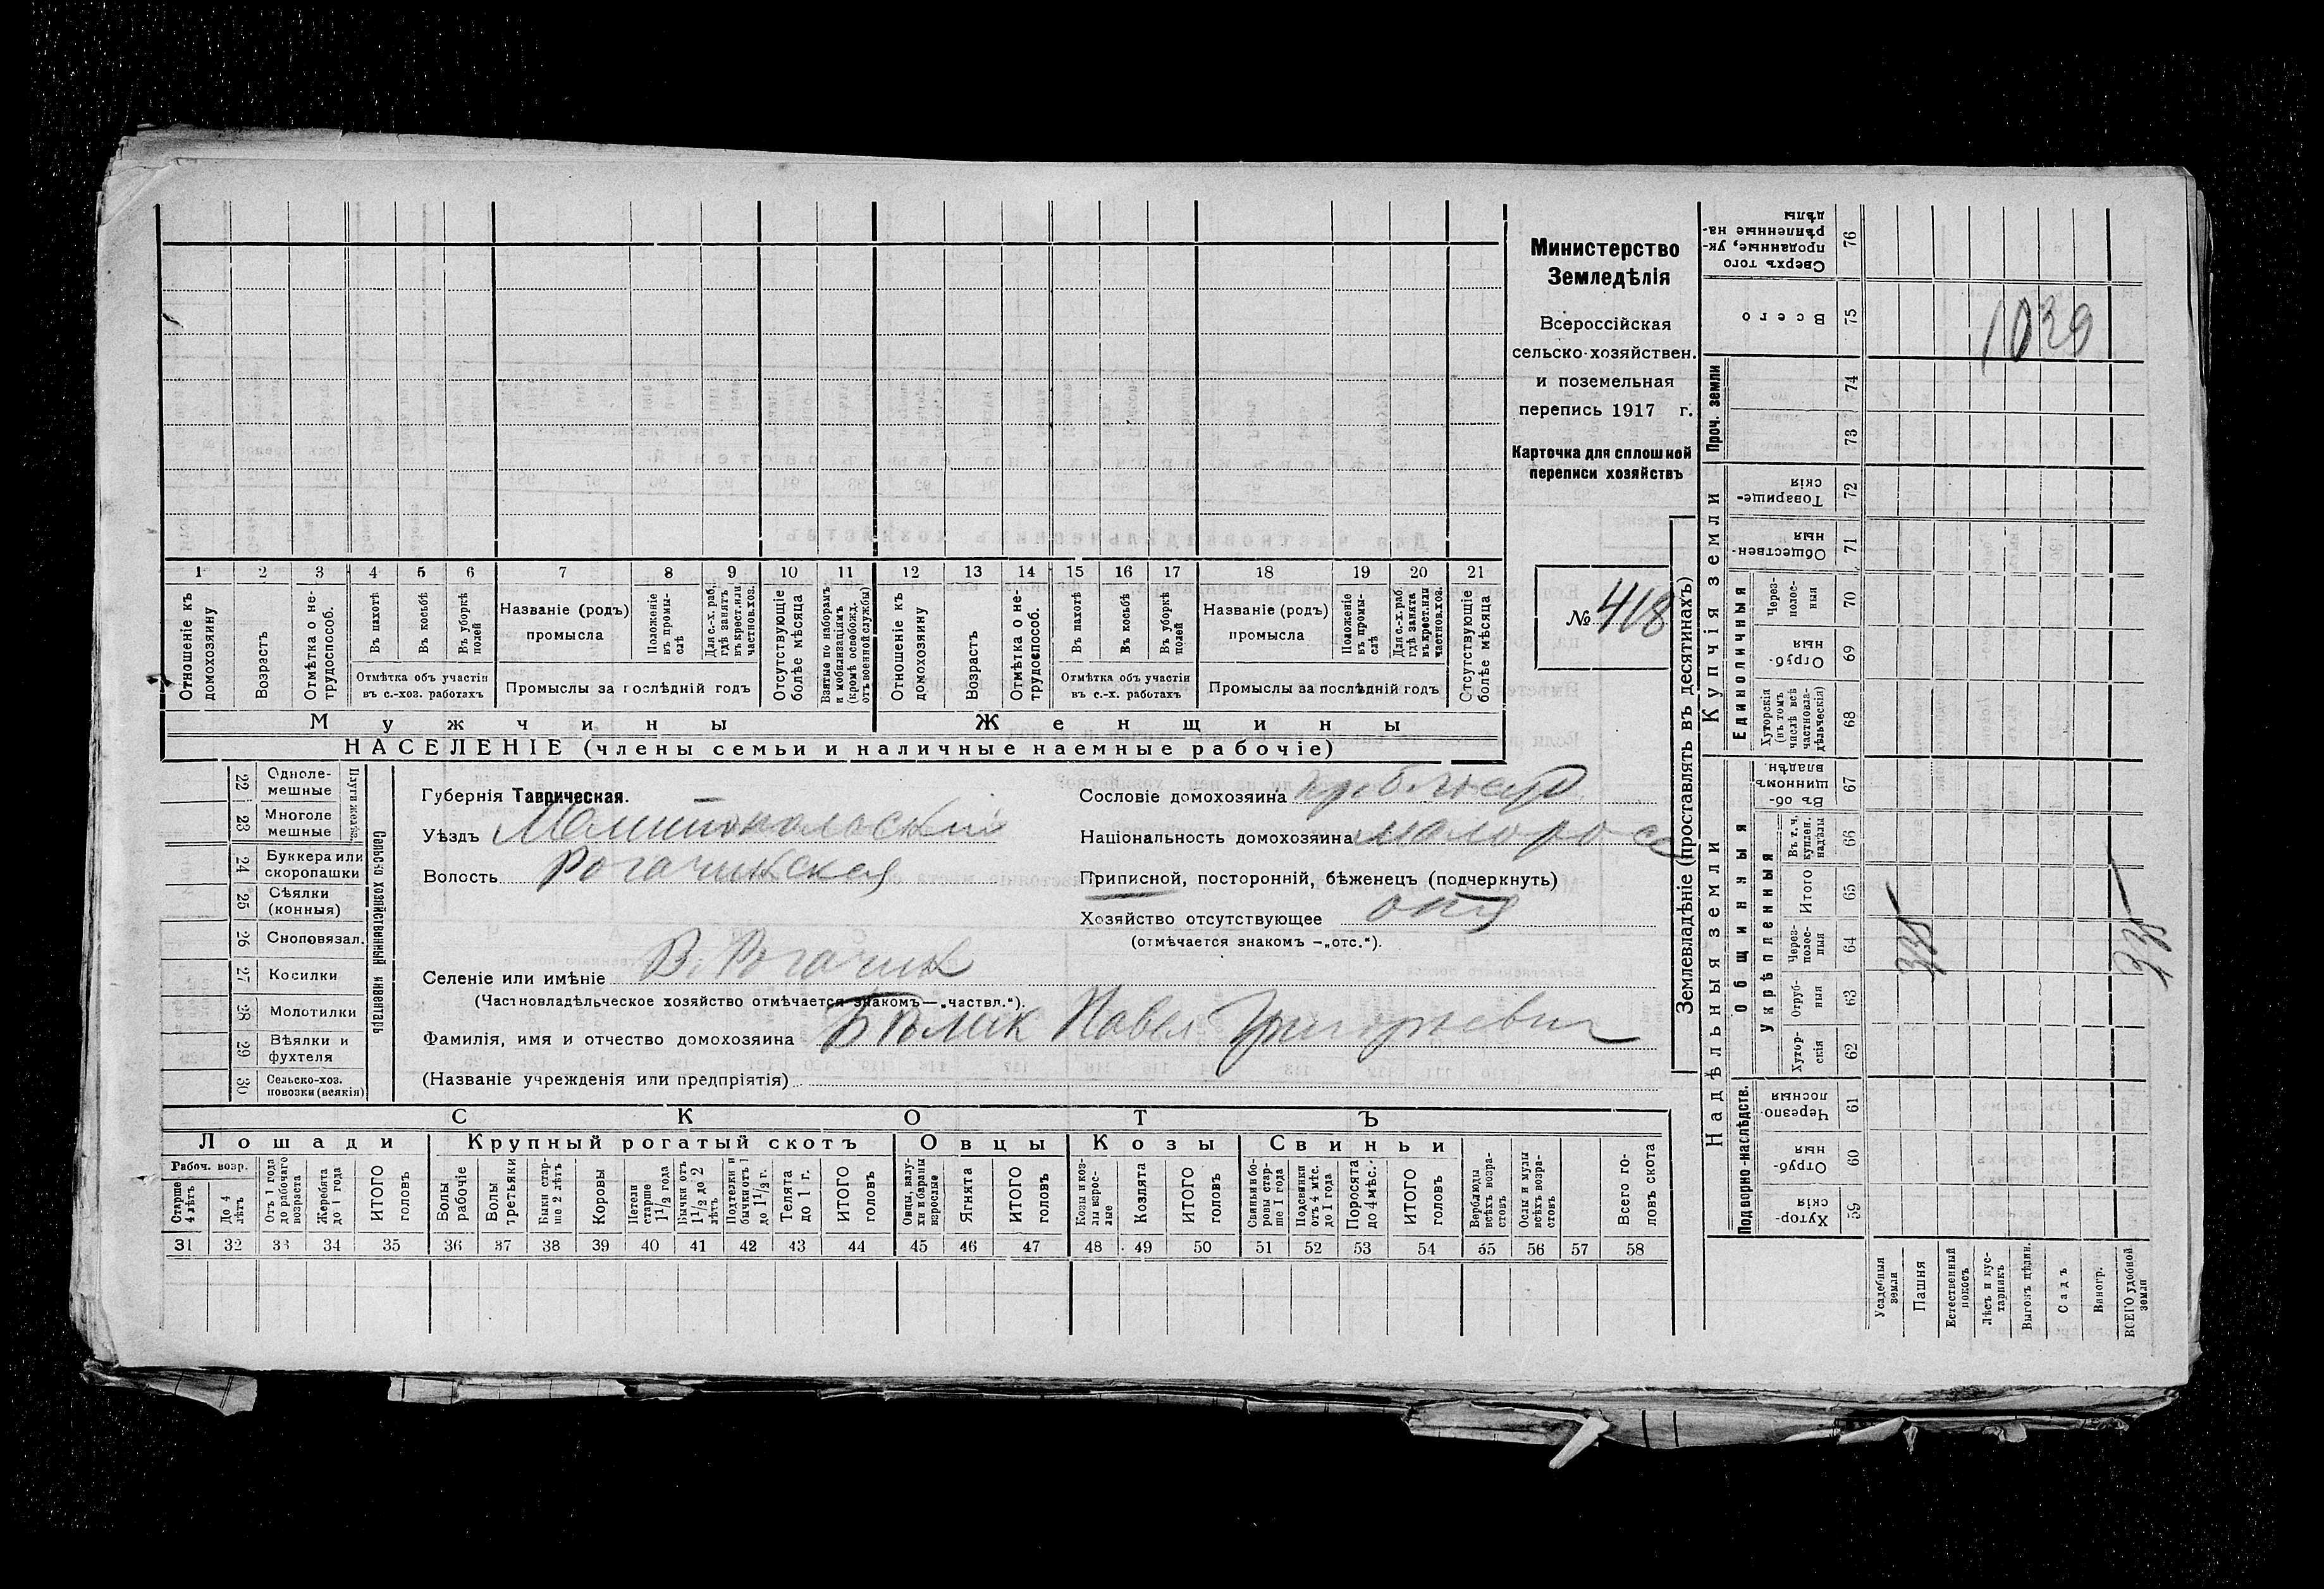 Министерство
Земледѣлія
Всероссійская
сельско-хозяйствен.
и поземельная
перепись 1917 г.
Карточка для сплошной
переписи хозяйствъ
№ 418
1 2 3 4 5 6 7 8 9 10 11 12 13 14 15 16 17 18 19 20 21
Отношеніе къ домохозяину
Возрастъ
Отмѣтка о не-трудоспособ.
Въ пахотѣ
Въ косьбѣ
Въ уборкѣ полей
Отмѣтка объ участіи въ с.-хоз. работахъ
Названіе (родъ) промысла
Положеніе въ промы-слѣ
Для с.-х. раб. гдѣ занятъ въ крест. или частнов. хоз.
Промыслы за послѣдній годъ
Отсутствующіе болѣе мѣсяца
Взятые по наборамъ и мобилизаціямъ (кромѣ освобожд. отъ военной службы)
Отношеніе къ домохозяину
Возрастъ
Отмѣтка о не-трудоспособ.
Въ пахотѣ
Въ косьбѣ
Въ уборкѣ полей
Отмѣтка объ участіи въ с.-х. работахъ
Названіе (родъ) промысла
Положеніе въ промы-слѣ
Для с.-х. раб. гдѣ занята въ крест. или частнов. хоз.
Промыслы за послѣдній годъ
Отсутствующіе болѣе мѣсяца
Мужчины Женщины
НАСЕЛЕНІЕ (члены семьи и наличные наемные рабочіе)
22 Одноле-мешные
23 Многоле мешные
Плуги желѣз.
24 Буккера или скоропашки
25 Сѣялки (конныя)
26 Сноповязал.
27 Косилки
28 Молотилки
29 Вѣялки и фухтеля
30 Сельско-хоз. повозки (всякія)
Сельско хозяйственный инвентарь
Губернія Таврическая.
Уѣздъ Мелитопольский
Волость Рогачинская
Сословіе домохозяина
Національность домохозяина малоросс
Приписной, посторонній, бѣженецъ (подчеркнуть)
Хозяйство отсутствующее
(отмѣчается знакомъ —„отс.“).
Селеніе или имѣніе В. Рогачик
(Частновладѣльческое хозяйство отмѣчается знакомъ—„частвл.“).
Фамилія, имя и отчество домохозяина Бѣлик Павел Григорьевич
(Названіе учрежденія или предпріятія)
СКОТЪ
Лошади Крупный рогатый скотъ Овцы Козы Свиньи
Рабоч. возр.
Старше 4 лѣтъ
До 4 лѣтъ
Отъ 1 года до рабочаго возраста
Жеребята до 1 года
ИТОГО головъ
Волы рабочіе
Волы третьяки
Быки стар-ше 2 лѣтъ
Коровы
Нетели старше 1 1/2 года
Бычки отъ 1 1/2 до 2 лѣтъ
Подтелки и бычки отъ 1 до 1 1/2 г.
Телята до 1 г.
ИТОГО головъ
Овцы, валу-хи и бараны взрослые
Ягнята
ИТОГО головъ
Козы и коз-лы взрос-лые
Козлята
ИТОГО головъ
Свиньи и бо-ровы стар-ше 1 года
Подсвинки отъ 4 мѣс. до 1 года
Поросята до 4 мѣс.
ИТОГО головъ
Верблюды всѣхъ возра-стовъ
Ослы и мулы всѣхъ возра-стовъ
Всего го-ловъ скота
31 32 33 34 35 36 37 38 39 40 41 42 43 44 45 46 47 48 49 50 51 52 53 54 55 56 57 58
Землевладѣніе (проставлять въ десятинахъ)
Надѣльныя земли
Купчія земли
Проч. земли
Подворно-наслѣдств.
Общинныя
Укрѣпленныя
Единоличныя
Сверхъ того проданные, ук-рѣпленные на-дѣлы 76
Всего 75
74
73
Товарище-скія 72
Обществен-ныя 71
Через-полос-ныя 70
Отруб-ныя 69
Хуторскія (въ томъ числѣ всѣ частновла-дѣльческія) 68
Въ об-щинномъ владѣн. 67
Въ т. ч. куплен. надѣлы 66
Итого 65
Через-полос-ныя 64
Отруб-ныя 63
Хутор-скія 62
Черезпо-лосныя 61
Отруб-ныя 60
Хутор-скія 59
1039
Усадебныя земли
Пашня
Естественный покосъ
Лѣсъ и кус-тарникъ
Выгонъ цѣлин.
Садъ
Виногр.
ВСЕГО удобной земли